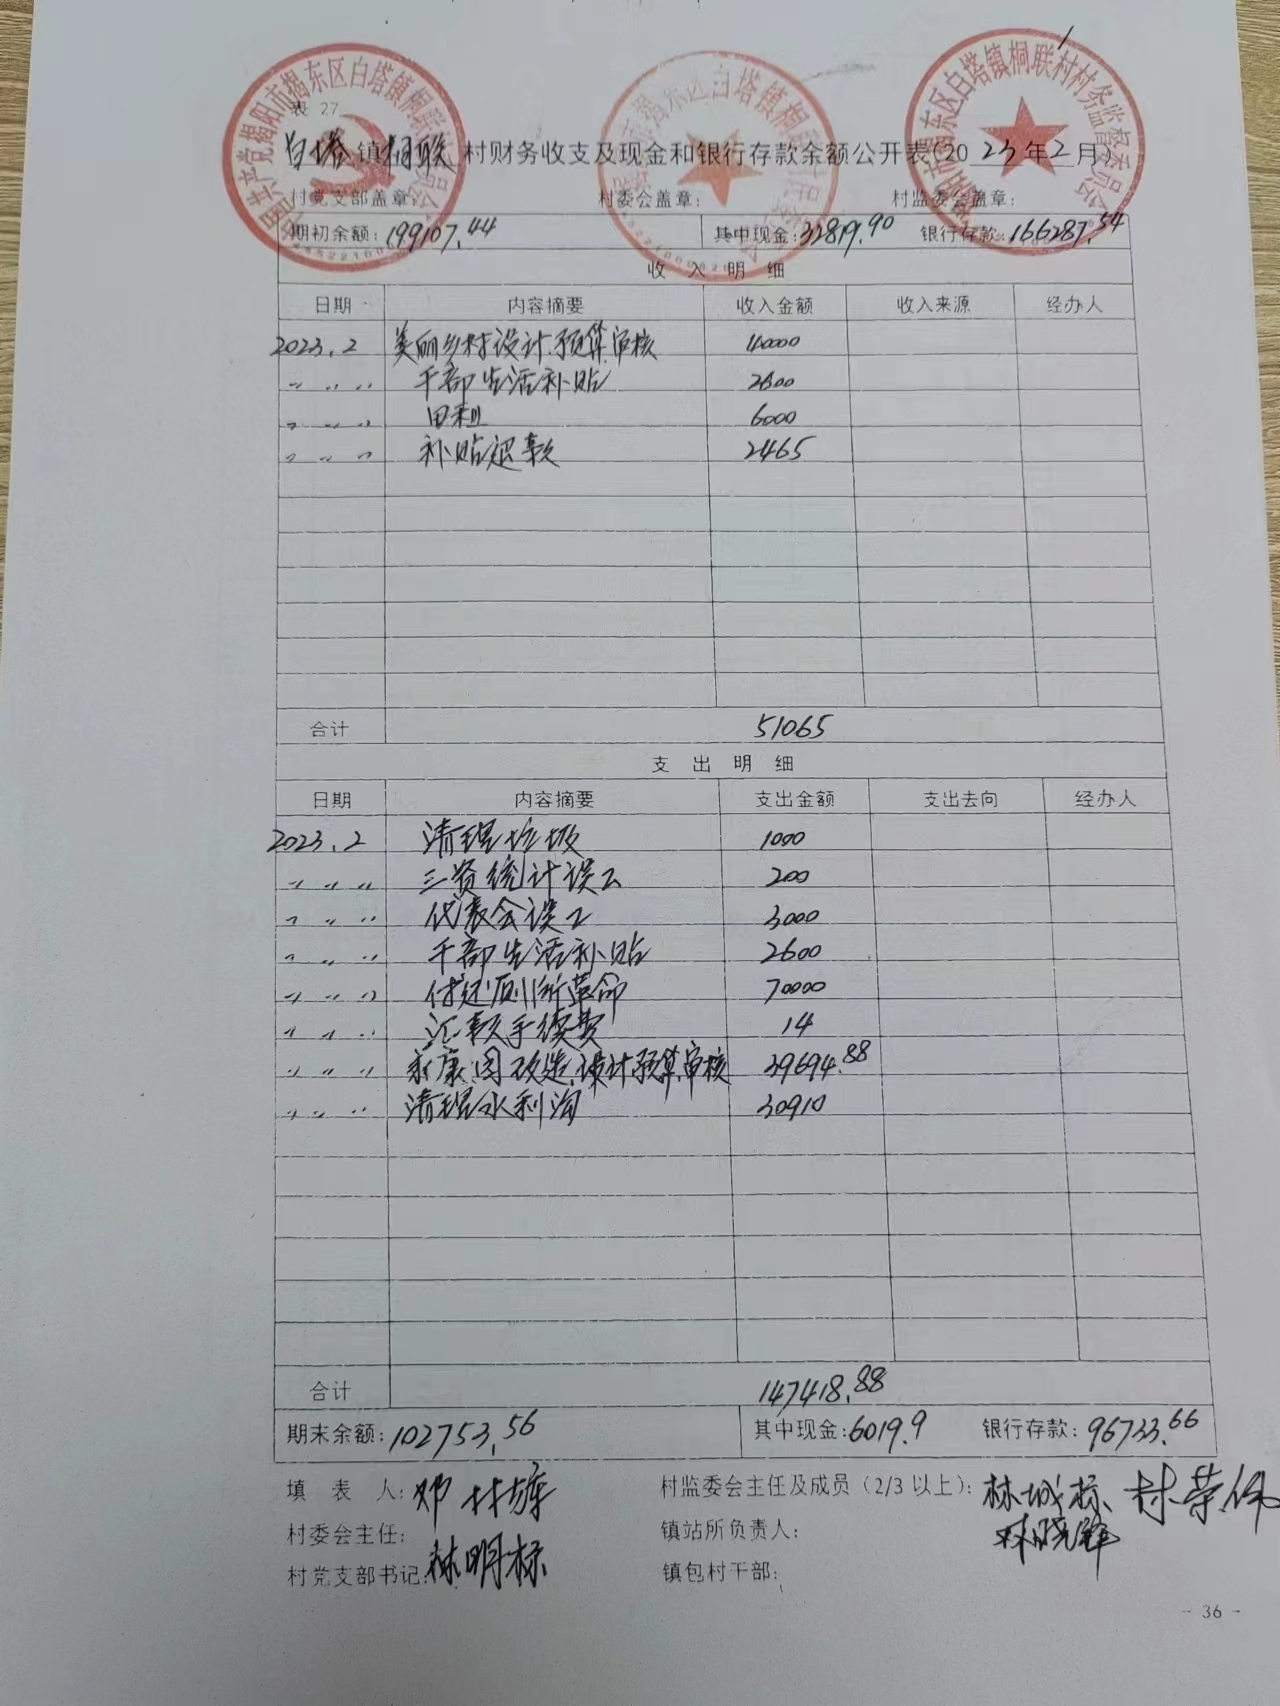 表 27
白塔镇桐联村财务收支及现金和银行存款余额公开表(2023年2月)
村党支部盖章: 村委会盖章: 村监委会盖章:
期初余额:199107.44 其中现金:32819.90 银行存款:166287.54
收 入 明 细
日期 内容摘要 收入金额 收入来源 经办人
2023.2 美丽乡村设计.预算.审核 40000
〃 〃 〃 干部生活补贴 2600
〃 〃 〃 田租 6000
〃 〃 〃 补贴退款 2465
合计 51065
支 出 明 细
日期 内容摘要 支出金额 支出去向 经办人
2023.2 清理垃圾 1000
〃 〃 〃 三资统计误工 200
〃 〃 〃 代表会误工 3000
〃 〃 〃 干部生活补贴 2600
〃 〃 〃 付还厕所革命 70000
〃 〃 〃 汇款手续费 14
〃 〃 〃 永康围改造.设计.预算.审核 39694.88
〃 〃 〃 清理水利沟 30910
合计 147418.88
期末余额:102753.56 其中现金:6019.9 银行存款:96733.66
填 表 人: 村监委会主任及成员(2/3以上): 林城标
村委会主任: 镇站所负责人: 林晓锋
村党支部书记:林明标 镇包村干部:
- 36 -